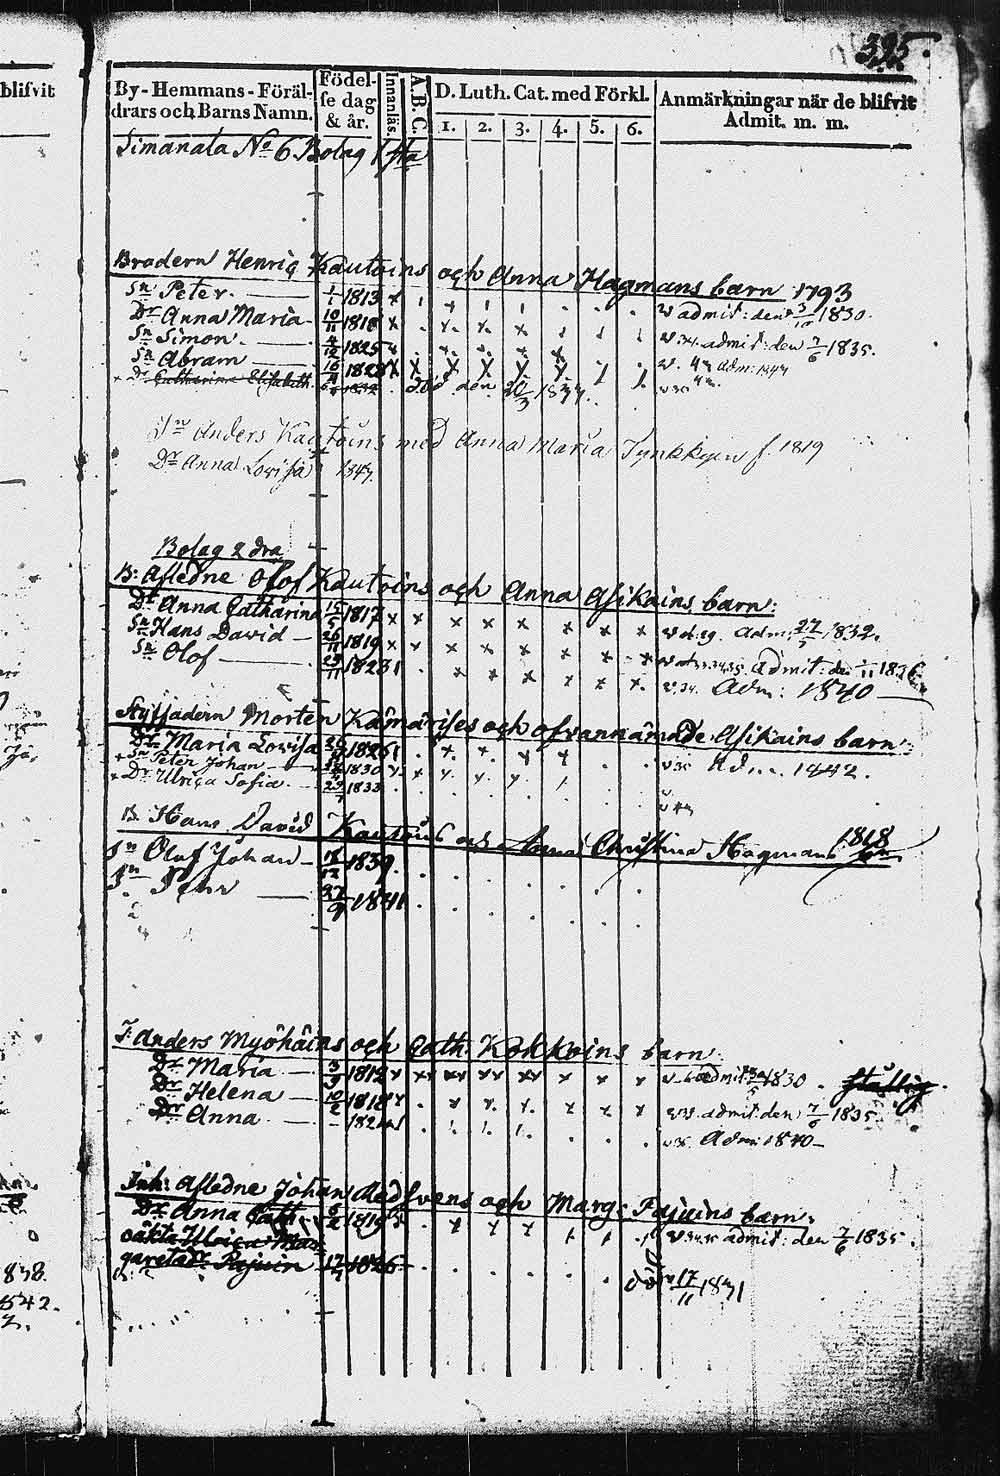 395.
blifvit
By-Hemmans-Föräl-
drars och Barns Namn.
Födel-
se dag
& år.
Innanläs.
A.B.C.
D. Luth. Cat. med Förkl.
1. 2. 3. 4. 5. 6.
Anmärkningar när de blifvit
Admit. m. m.
Simanala No 6 Bolag 1 sta
Brodern Henric Kautoins och Anna Hagmans barn 1793
Sn Peter. 1/1 1813 admit: den 3/10 1830.
Dr Anna Maria 10/11 1818 admit: den 7/6 1835.
Sn Simon. 4/12 1825 adm: 1844
Sn Abram 1828
Dr Catharina Elisabeth. 1832 död den 20/3 1837.
Sn Anders Kautoins med Anna Maria Tynkkyen f. 1819
Dr Anna Lovisa 1847.
Bolag 2 dra
B: Afledne Olof Kautoins och Anna Asikains barn:
Dr Anna Catharina 15/5 1817 adm: 27/5 1832.
Sn Hans David 26/11 1819 admit: den 1/11 1836
Sn Olof 23/11 1823 Adm: 1840
Styffadern Morten Kämäräises och ofvannämnde Asikains barn:
Dr Maria Lovisa 1826 Adm. 1842.
Sn Peter Johan 1830
Dr Ulrica Sofia 23/7 1833
B. Hans David Kautoins och Anna Christina Hagmans 1818
Sn Olof Johan 18/12 1839.
Sn Pehr 27/9 1841
T: Anders Myöhäins och Cath: Kokkoins barn
Dr Maria 1812 admit: 1830
Dr Helena 10/2 1818 admit: den 7/6 1835
Dr Anna 1824 Adm: 1840
Inh: Afledne Johan Medsvens och Marg: Pajuins barn:
Dr Anna Cath. 6/2 1819 admit: den 7/6 1835.
oäkta Ulrica Mar-
gareta Pajuin 1826 död 17/11 1831
1838.
1842.